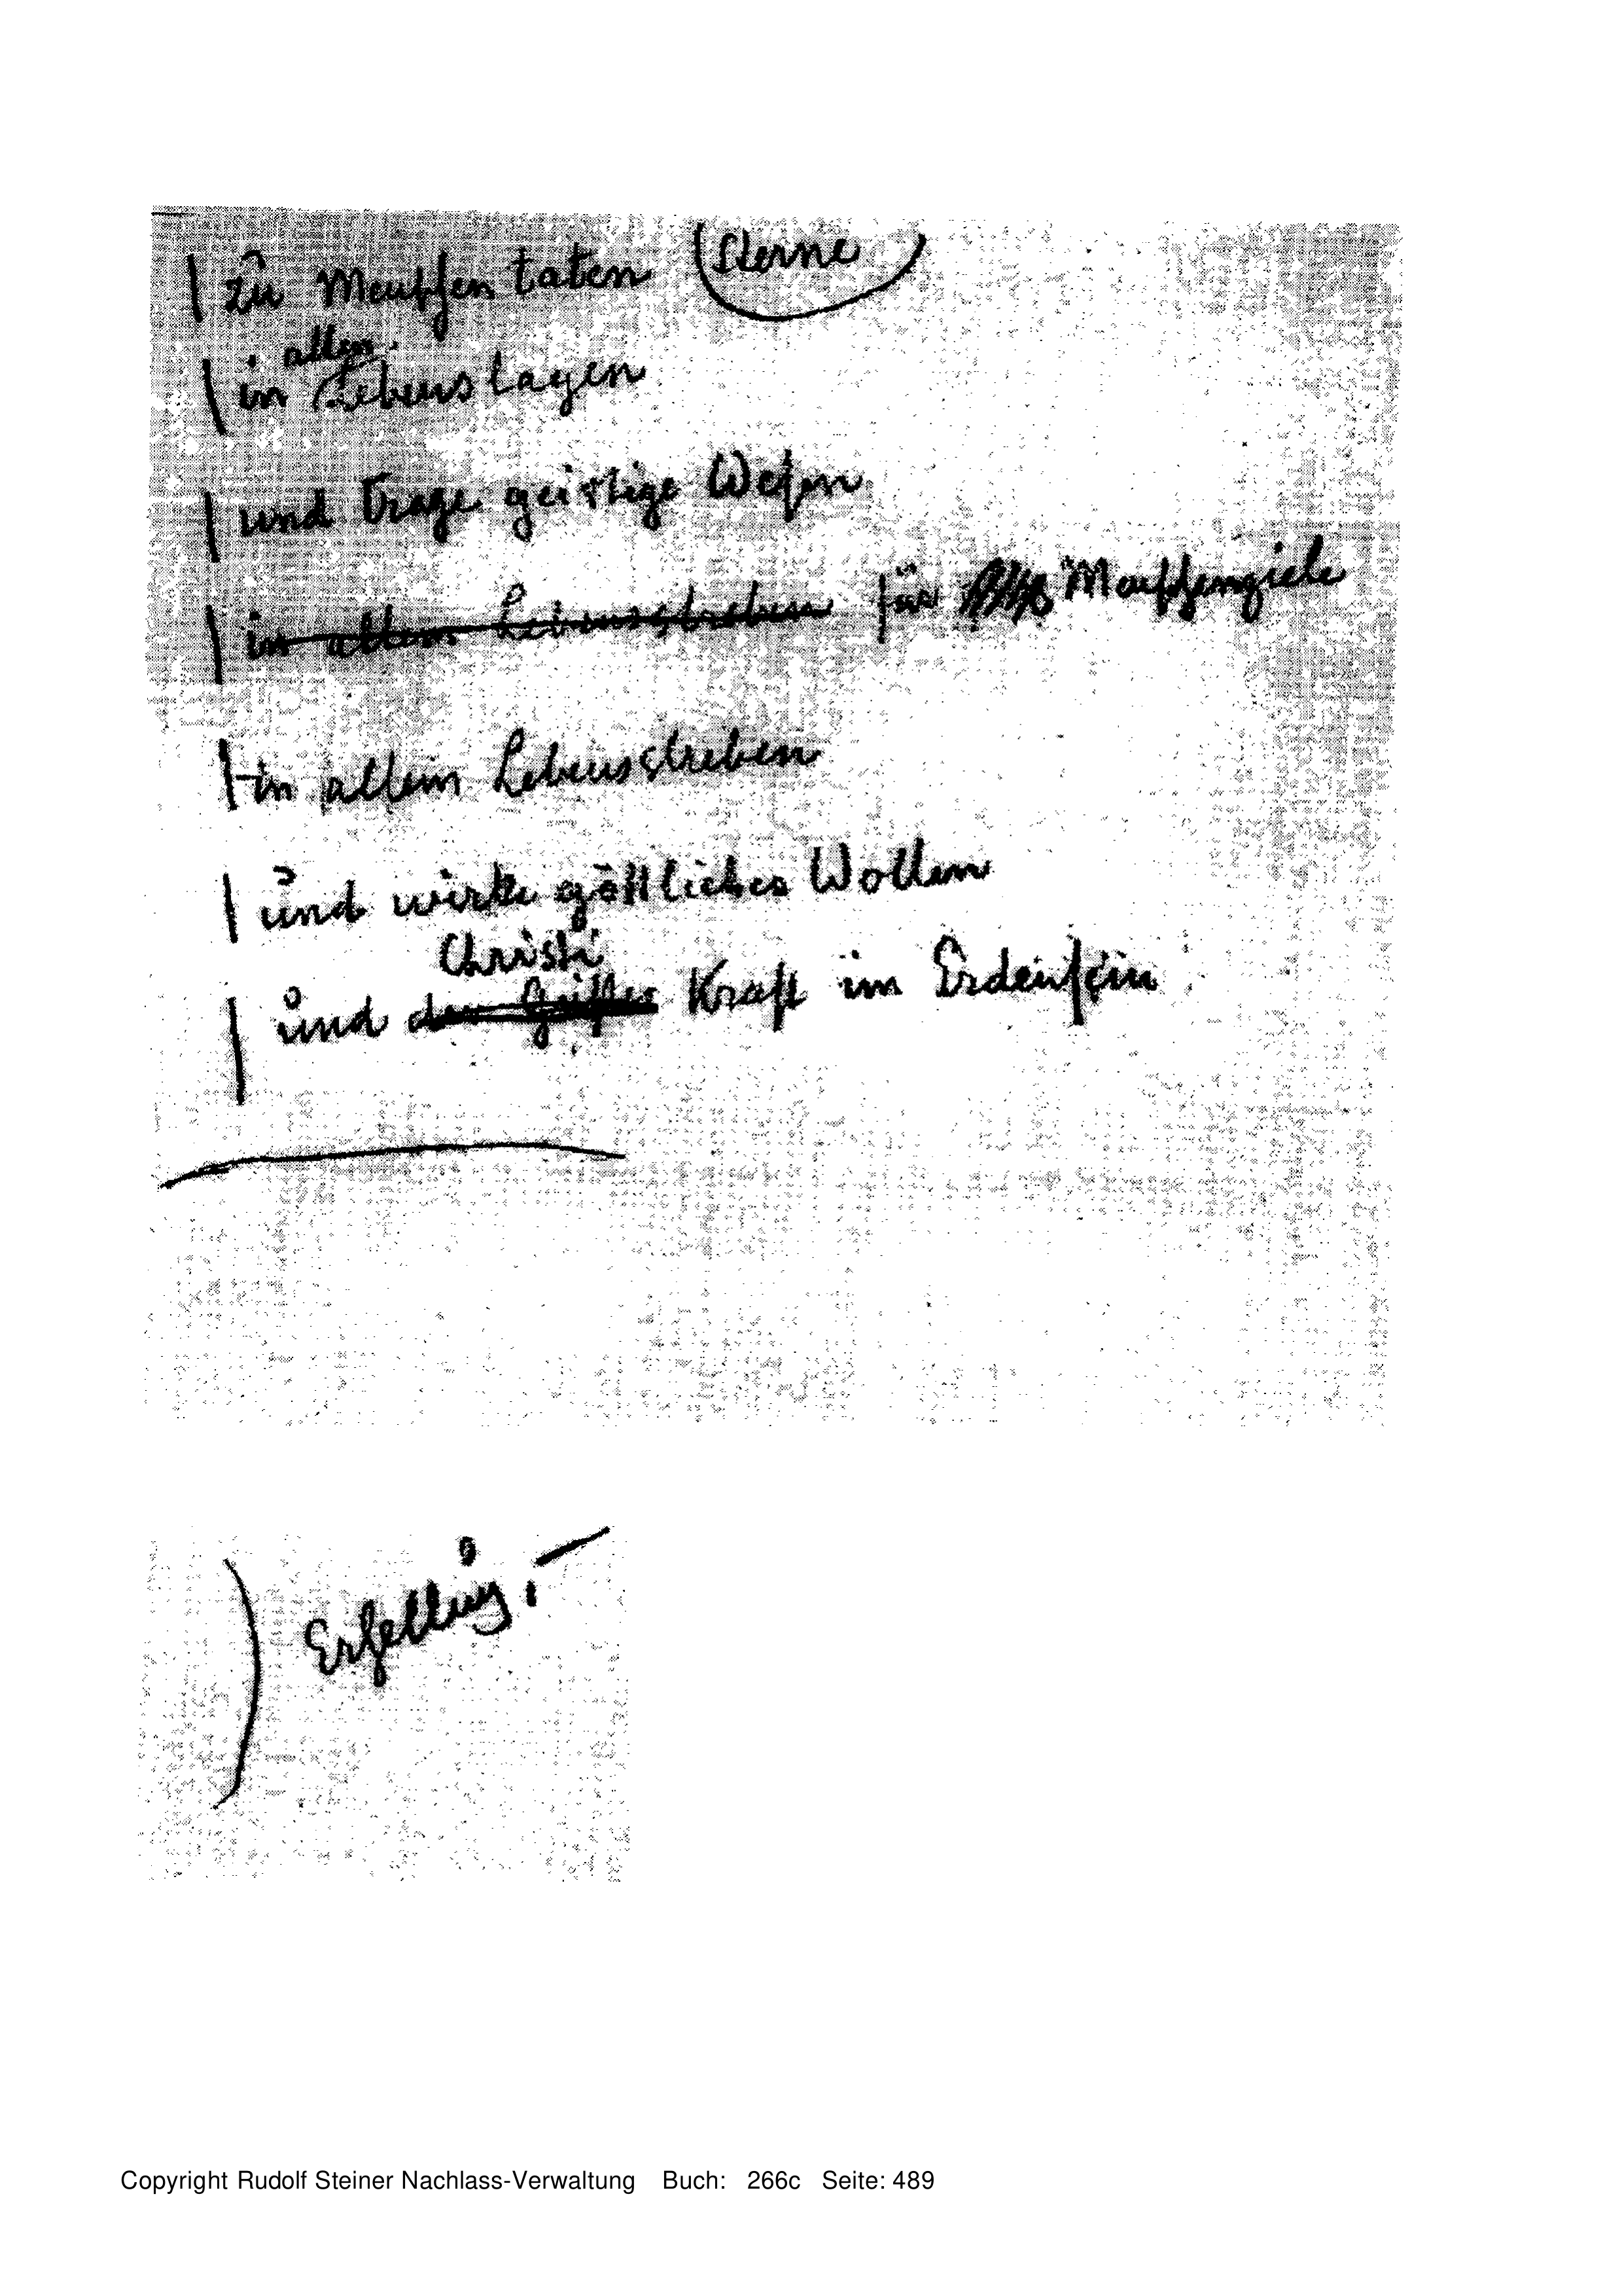 zu Menschentaten (Sterne)
allen
in Lebenslagen
und trage geistige Wesen
in allem Lebensstreben für Menschenziele
in allem Lebensstreben
und wirke göttliches Wollen
Christi
und der Geister Kraft im Erdensein
Erhellung,
Copyright Rudolf Steiner Nachlass-Verwaltung Buch: 266c Seite: 489